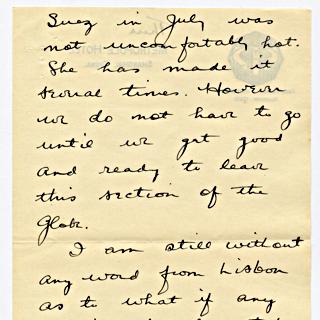 Suez in July was
not uncomfortably hot.
She has made it
several times. However
we do not have to go
until we get good
and ready to leave
this section of the
Globe.
I am still without
any word from Lisbon
as to what if any